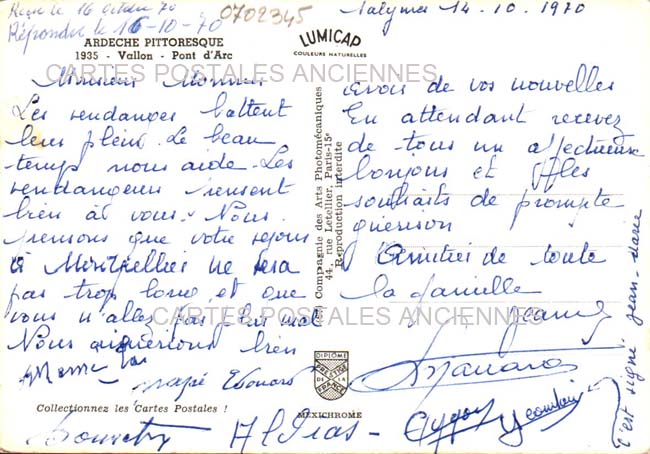 Reçu le 16 octobre 70
Répondu le 16-10-70
0702345
ARDECHE PITTORESQUE
1935 - Vallon - Pont d'Arc
LUMICAP
COULEURS NATURELLES
14-10.1970
CARTES POSTALES ANCIENNES
Monsieur
Les vendanges battent
leur plein. Le beau
temps nous aide. Les
vendangeurs pensent
bien à vous. Nous
pensons que votre séjour
à Montpellier ne sera
pas trop long et que
vous n'allez pas plus mal
Nous aimerions bien
avoir de vos nouvelles
En attendant recevez
de tous un affectueux
bonjour et les
souhaits de prompte
guérison
Amitiés de toute
la famille
CARTES POSTALES ANCIENNES
Compagnie des Arts Photomécaniques
44, rue Letellier, Paris-15e
Reproduction interdite
DIPLOME
PRESTIGE
DE LA
FRANCE
MEXICHROME
Collectionnez les Cartes Postales !
c'est signé Jean-Marie